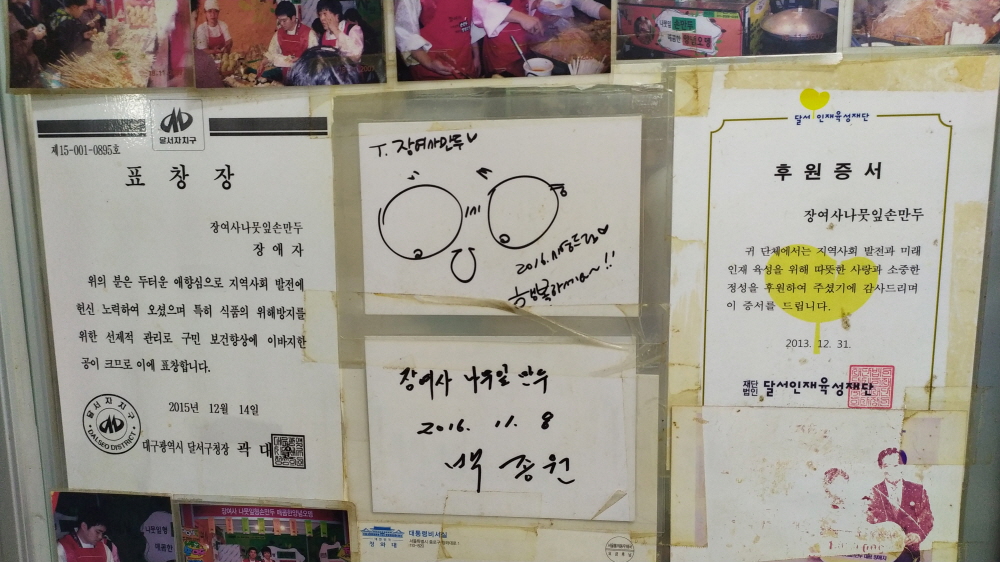 나뭇잎
손만두
매콤한
양념오뎅
달서자치구
제15-001-0895호
표 창 장
장여사나뭇잎손만두
장 애 자
위의 분은 두터운 애향심으로 지역사회 발전에
헌신 노력하여 오셨으며 특히 식품의 위해방지를
위한 선제적 관리로 구민 보건향상에 이바지한
공이 크므로 이에 표창합니다.
2015년 12월 14일
달서자치구
DALSEO DISTRICT
대구광역시 달서구청장 곽 대
T. 장여사만두
2016.
행복하세요~!!
장여사 나뭇잎 만두
2016. 11. 8
백 종 원
달서 인재육성재단
후 원 증 서
장여사나뭇잎손만두
귀 단체에서는 지역사회 발전과 미래
인재 육성을 위해 따뜻한 사랑과 소중한
정성을 후원하여 주셨기에 감사드리며
이 증서를 드립니다.
2013. 12. 31.
재단법인 달서인재육성재단
나뭇잎
매콤한
장여사 나뭇잎손만두매콤한양념오뎅
청와대
대통령비서실